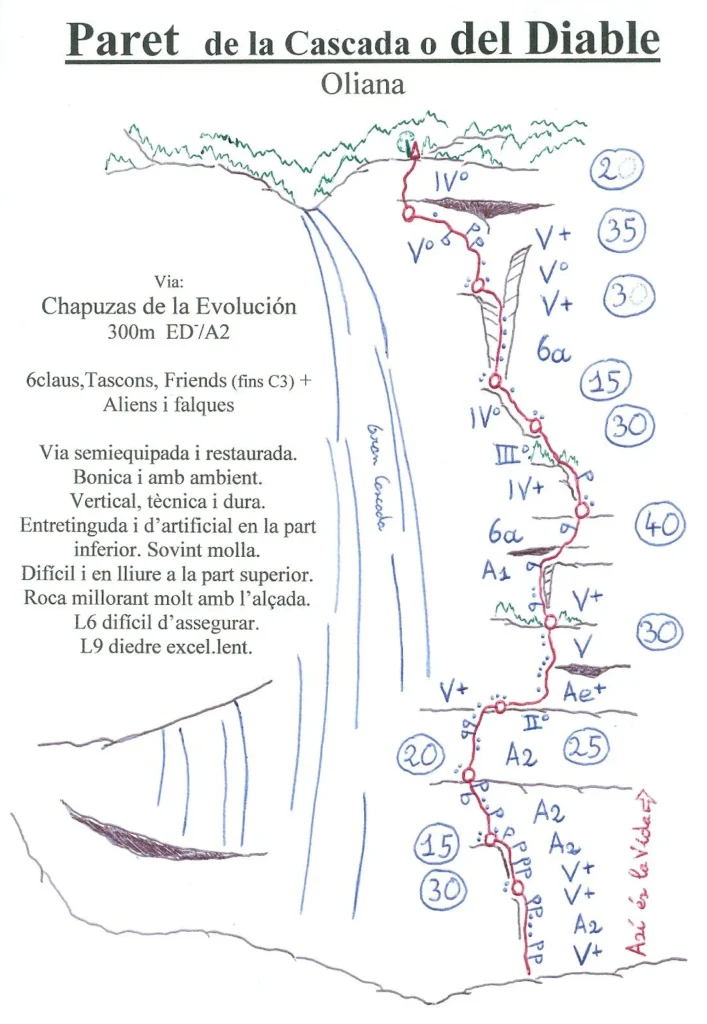 Paret de la Cascada o del Diable
Oliana
IVº
20
35
Vº
V+
Vº
V+
30
Via:
Chapuzas de la Evolución
300m ED⁻/A2
6a
15
6claus,Tascons, Friends (fins C3) +
Aliens i falques
IVº
30
IIIº
Via semiequipada i restaurada.
Bonica i amb ambient.
Vertical, tècnica i dura.
Entretinguda i d’artificial en la part
inferior. Sovint molla.
Difícil i en lliure a la part superior.
Roca millorant molt amb l’alçada.
L6 difícil d’assegurar.
L9 diedre excel.lent.
Gran Cascada
IV+
40
6a
A1
V+
30
V
Ae+
V+
IIº
20
A2
25
A2
15
A2
V+
30
V+
A2
V+
Así és la Vida